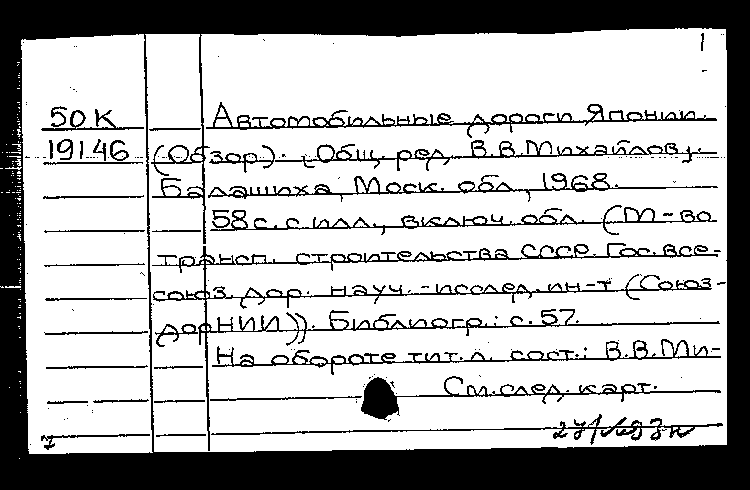 1
50К Автомобильные дороги Японии.
19146 (Обзор). [Общ. ред. В.В.Михайлов].
Балашиха, Моск. обл., 1968.
58с. с илл., включ. обл. (М-во
трансп. строительства СССР. Гос. все-
союз. дор. науч.-исслед. ин-т (Союз-
дорНИИ)). Библиогр.: с. 57.
На обороте тит. л. сост.: В.В.Ми-
См. след. карт.